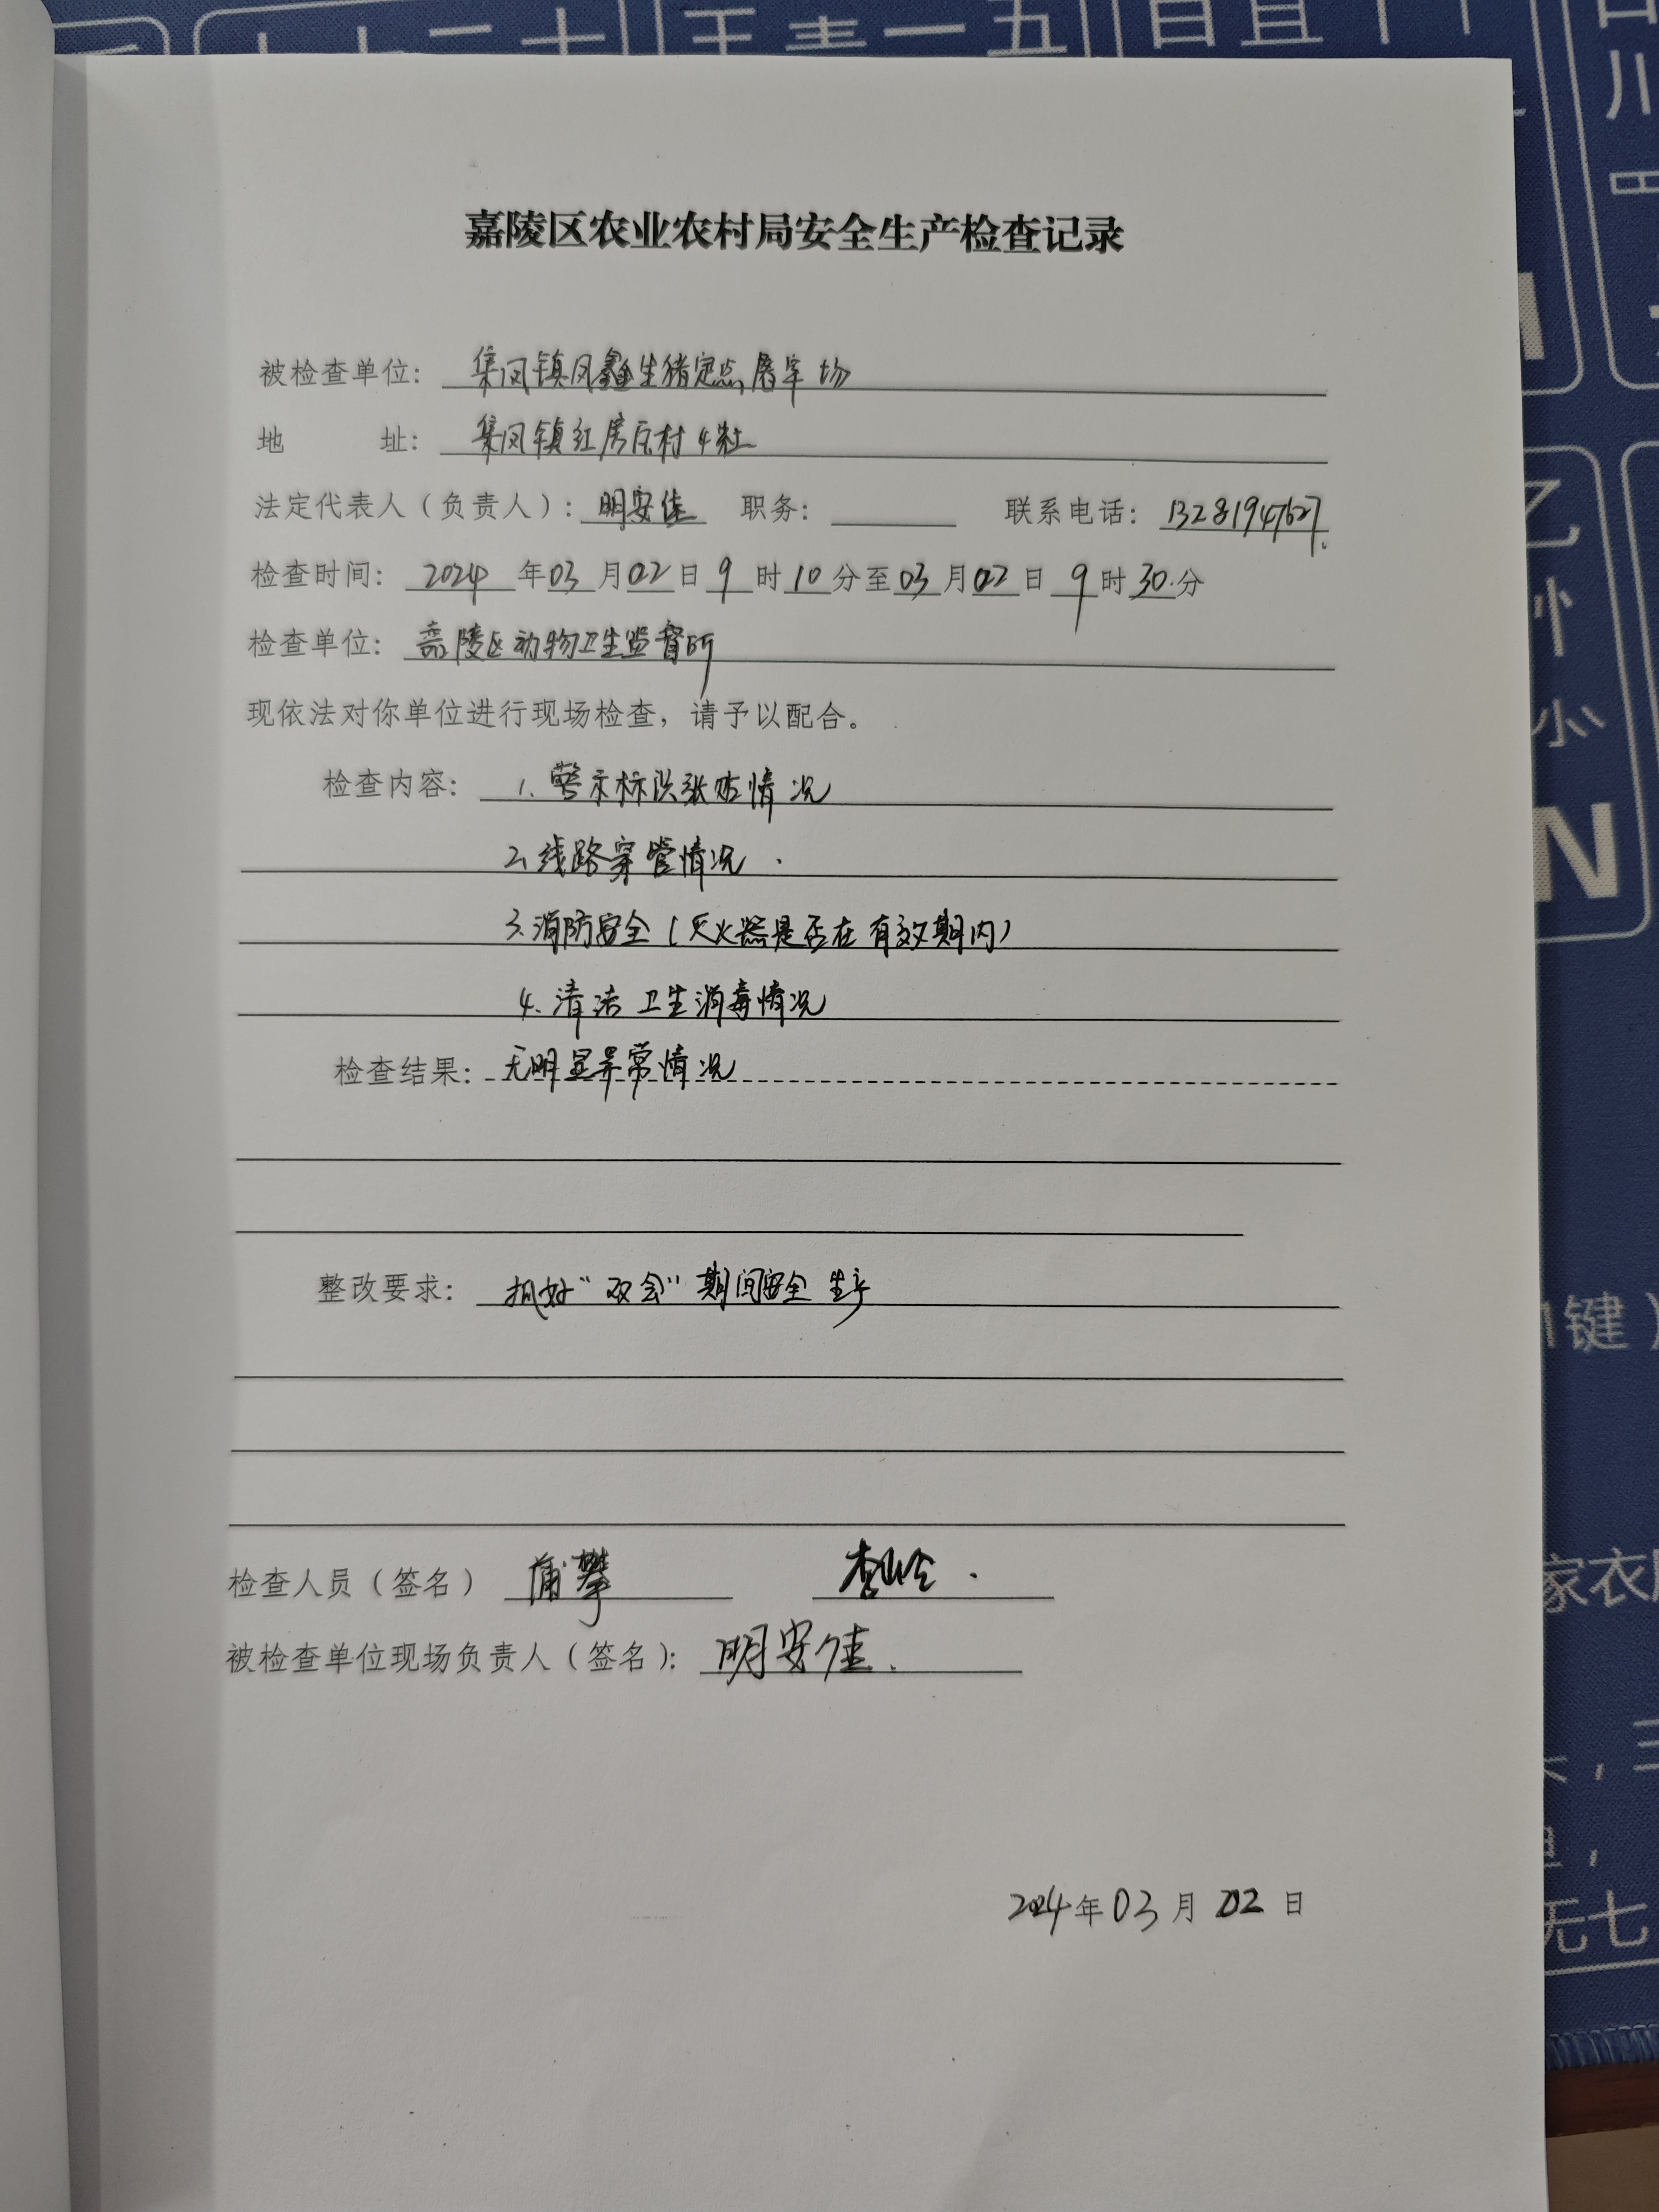 嘉陵区农业农村局安全生产检查记录
被检查单位: 集凤镇凤鑫生猪定点屠宰场
地 址: 集凤镇红房庄村4社
法定代表人(负责人): 明安佳 职务: 联系电话: 13281947627
检查时间: 2024年03月02日9时10分至03月02日9时30分
检查单位: 嘉陵区动物卫生监督所
现依法对你单位进行现场检查,请予以配合。
检查内容: 1.警示标识张贴情况
2.线路穿管情况.
3.消防安全(灭火器是否在有效期内)
4.清洁卫生消毒情况
检查结果: 无明显异常情况
整改要求: 抓好"双会"期间安全生产
检查人员(签名) 蒲攀
被检查单位现场负责人(签名): 明安佳.
2024年03月02日